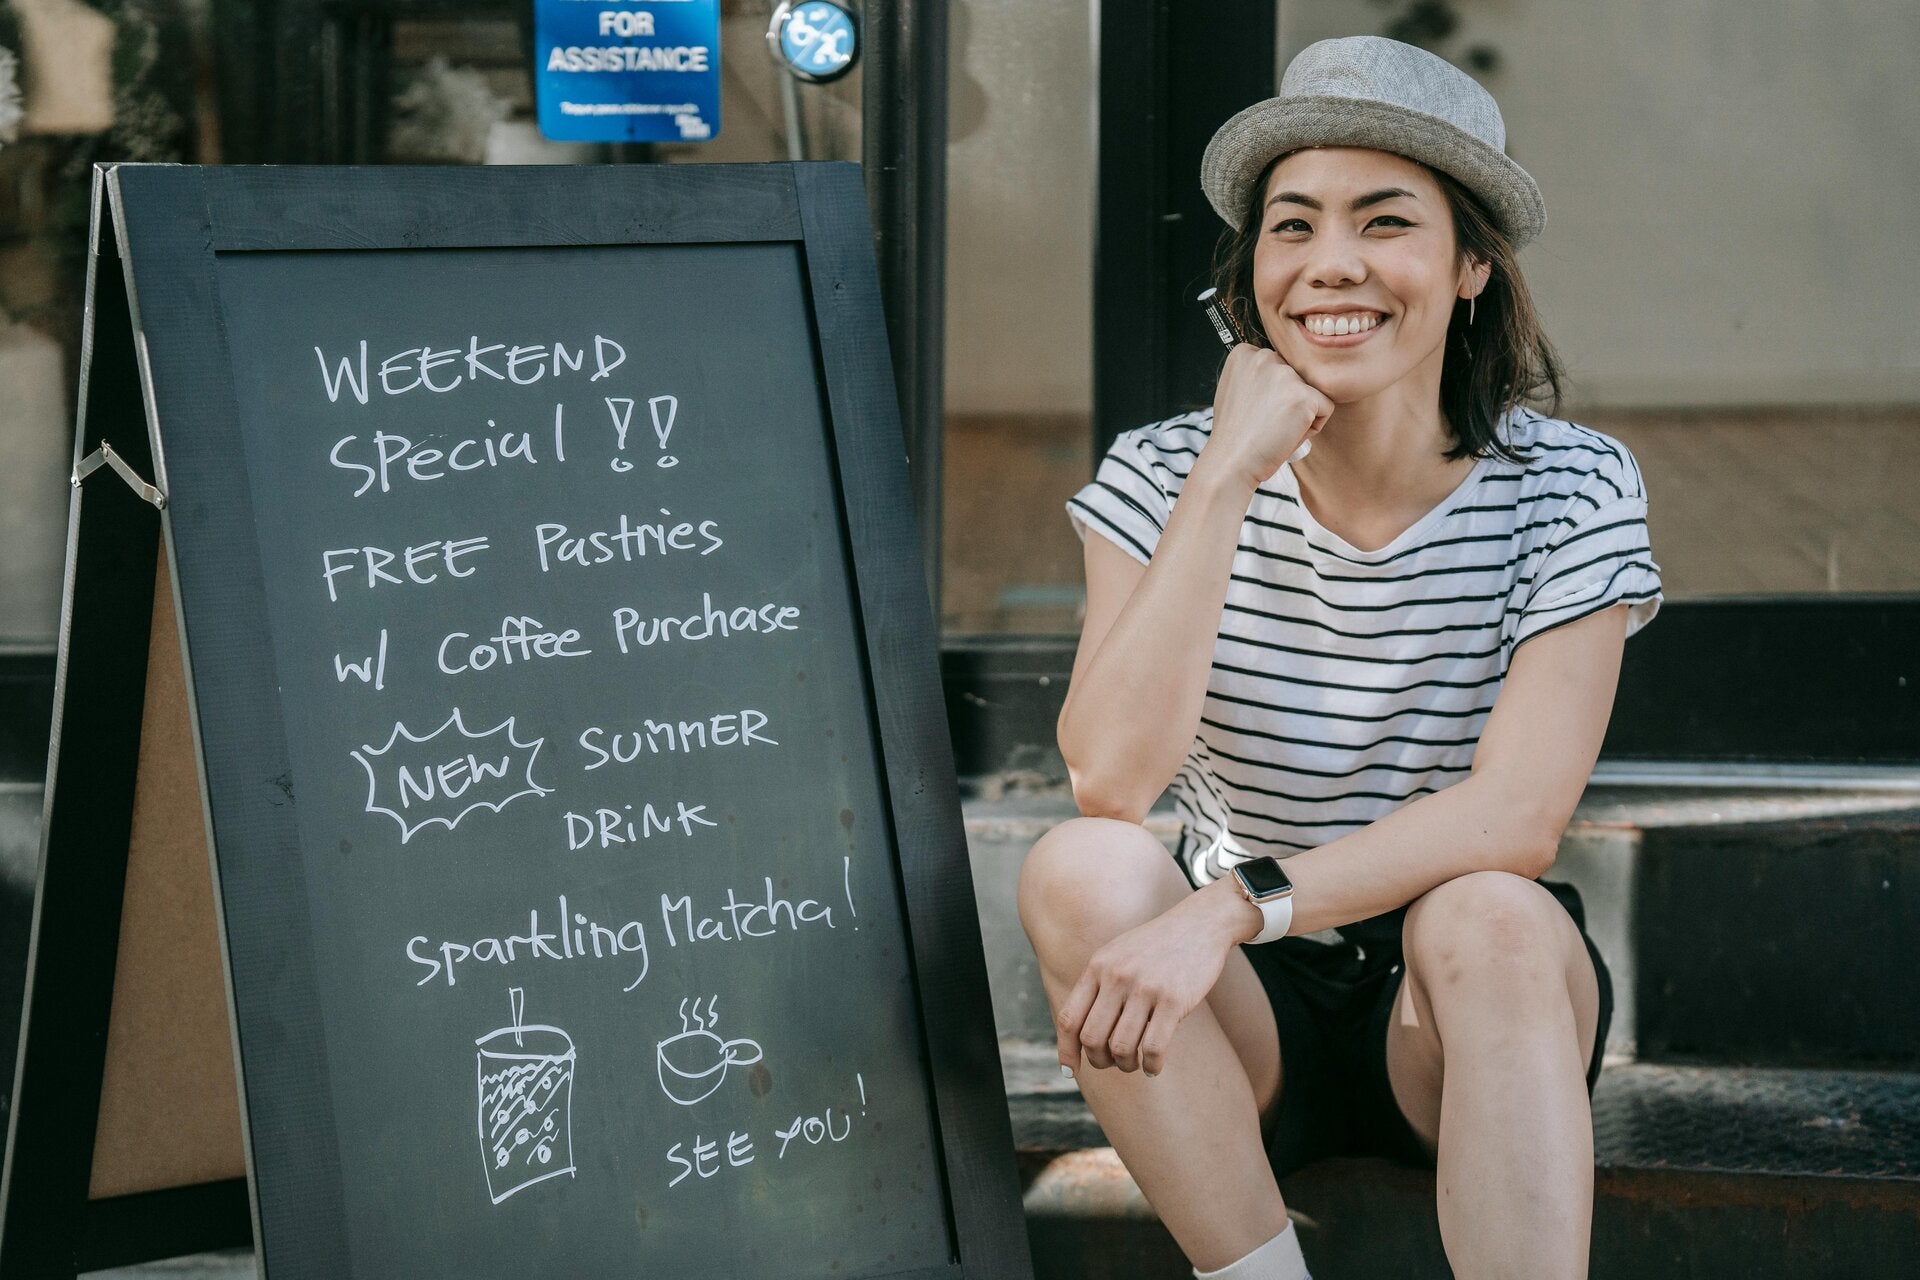 FOR
ASSISTANCE
WEEKEND
SPecial !!
FREE Pastries
w/ Coffee Purchase
NEW SUMMER
DRiNK
Sparkling Matcha!
SEE YOU!